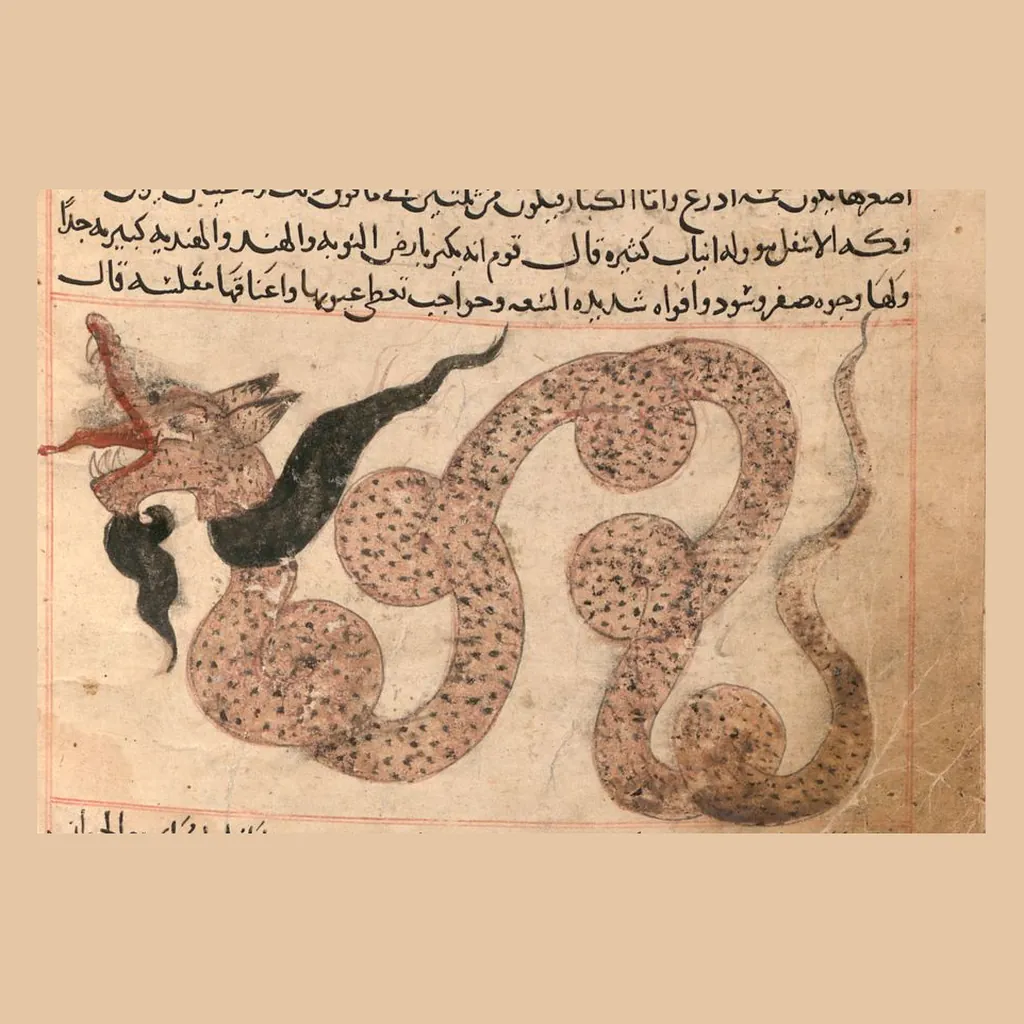 اصغرها يكون خمسه ادرع واما الكبار فيكون من ثلثين الى ما فوق ذلك
فكه الاسفل هو وله انياب كثيره قال قوم انه يكثر بارض النوبه والهند والهنديه كبيره جداً
ولها وجوه صفر وسود وافواه شديده السعه وحواجب تغطى عيونها واعناقها مفلسه قال